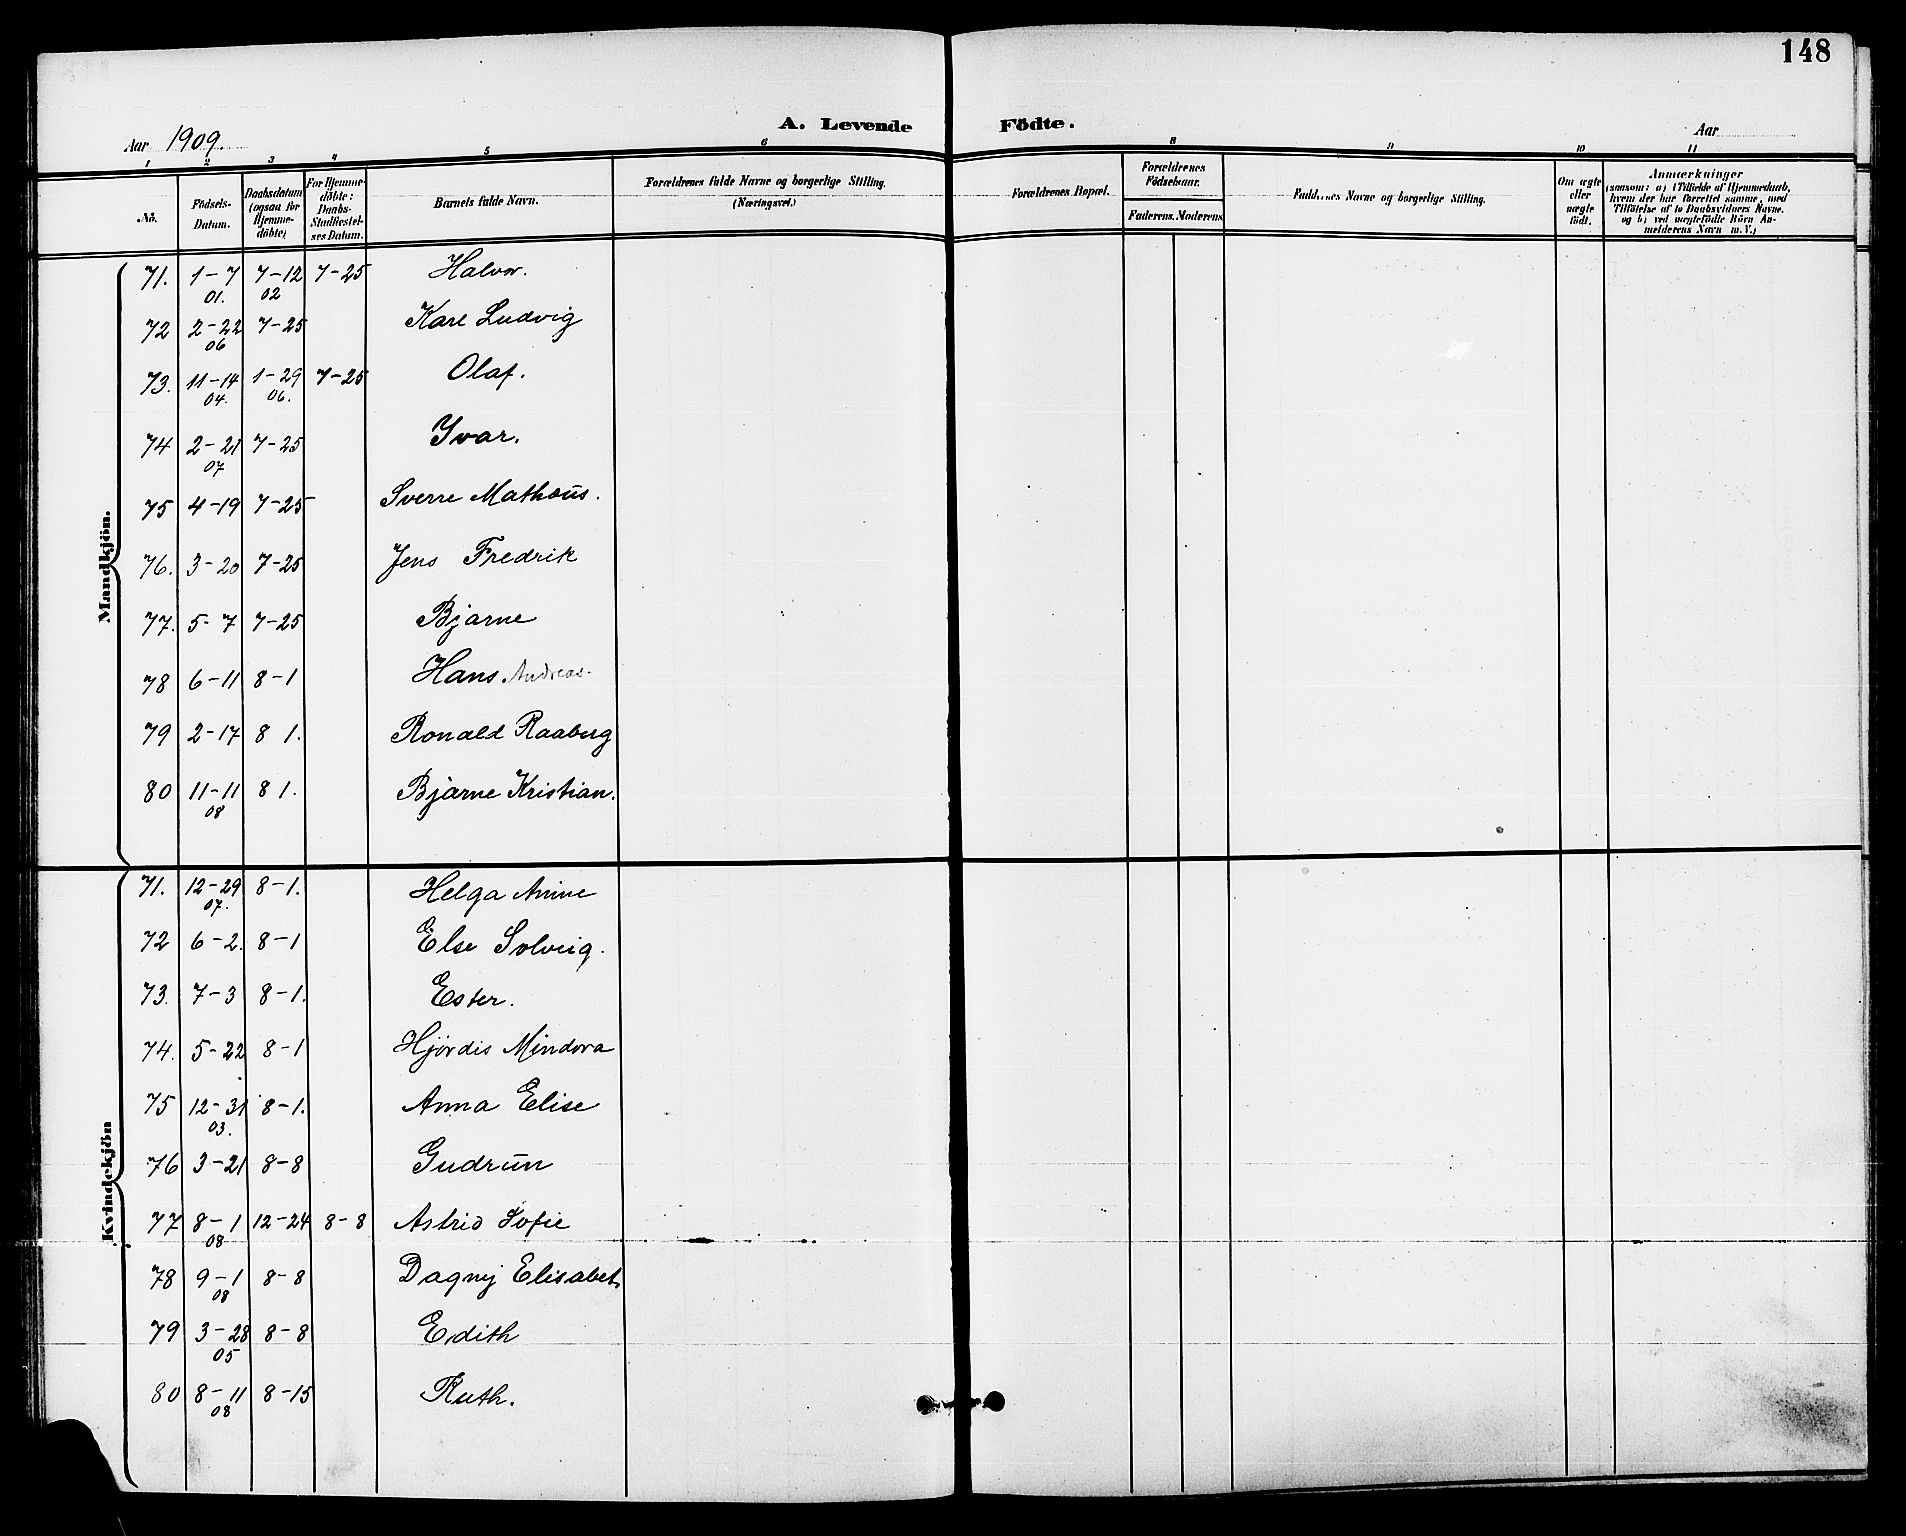 148
A. Levende Födte.
Aar 1909. Aar
1 2 3 4 5 6 8 9 10 11
No. Födsels-Datum. Daabsdatum (ogsaa for Hjemme-döbte) For Hjemme-döbte: Daabs-Stadfæstel-ses Datum. Barnets fulde Navn. Forældrenes fulde Navne og borgerlige Stilling. (Næringsvei.) Forældrenes Bopæl. Forældrenes Födselsaar. Faderens. Moderens Faddernes Navne og borgerlige Stilling. Om ægte eller uægte födt. Anmærkninger (saasom: a) i Tilfælde af Hjemmedaab, hvem der har forrettet samme, med Tilföielse af to Daabsvidners Navne, og b) ved uægtefödte Börn An-melderens Navn m. V.)
Mandkjön.
71. 1-7 01. 7-12 02 7-25 Halvor.
72 2-22 06 7-25 Karl Ludvig
73. 11-14 04. 1-29 06. 7-25 Olaf.
74 2-21 07 7-25 Yvar.
75 4-19 7-25 Sverre Mathæus.
76. 3-20 7-25 Jens Fredrik
77. 5-7 7-25 Bjarne
78 6-11 8-1 Hans. Andreas.
79 2-17 8 1. Ronald Raaberg
80 11-11 08 8 1. Bjarne Kristian.
Kvindekjön
71. 12-29 07. 8-1. Helga Amine
72 6-2. 8-1 Else Solveig.
73. 7-3 8-1. Ester.
74. 5-22 8-1 Hjördis Mindora
75 12-31 03. 8-1. Anna Elise
76 3-21 8-8 Gudrun
77 8-1 08 12-24 8-8 Astrid Sofie
78 9-1 08 8-8 Dagny Elisabet
79 3-28 05 8-8 Edith
80 8-11 08 8-15 Ruth.